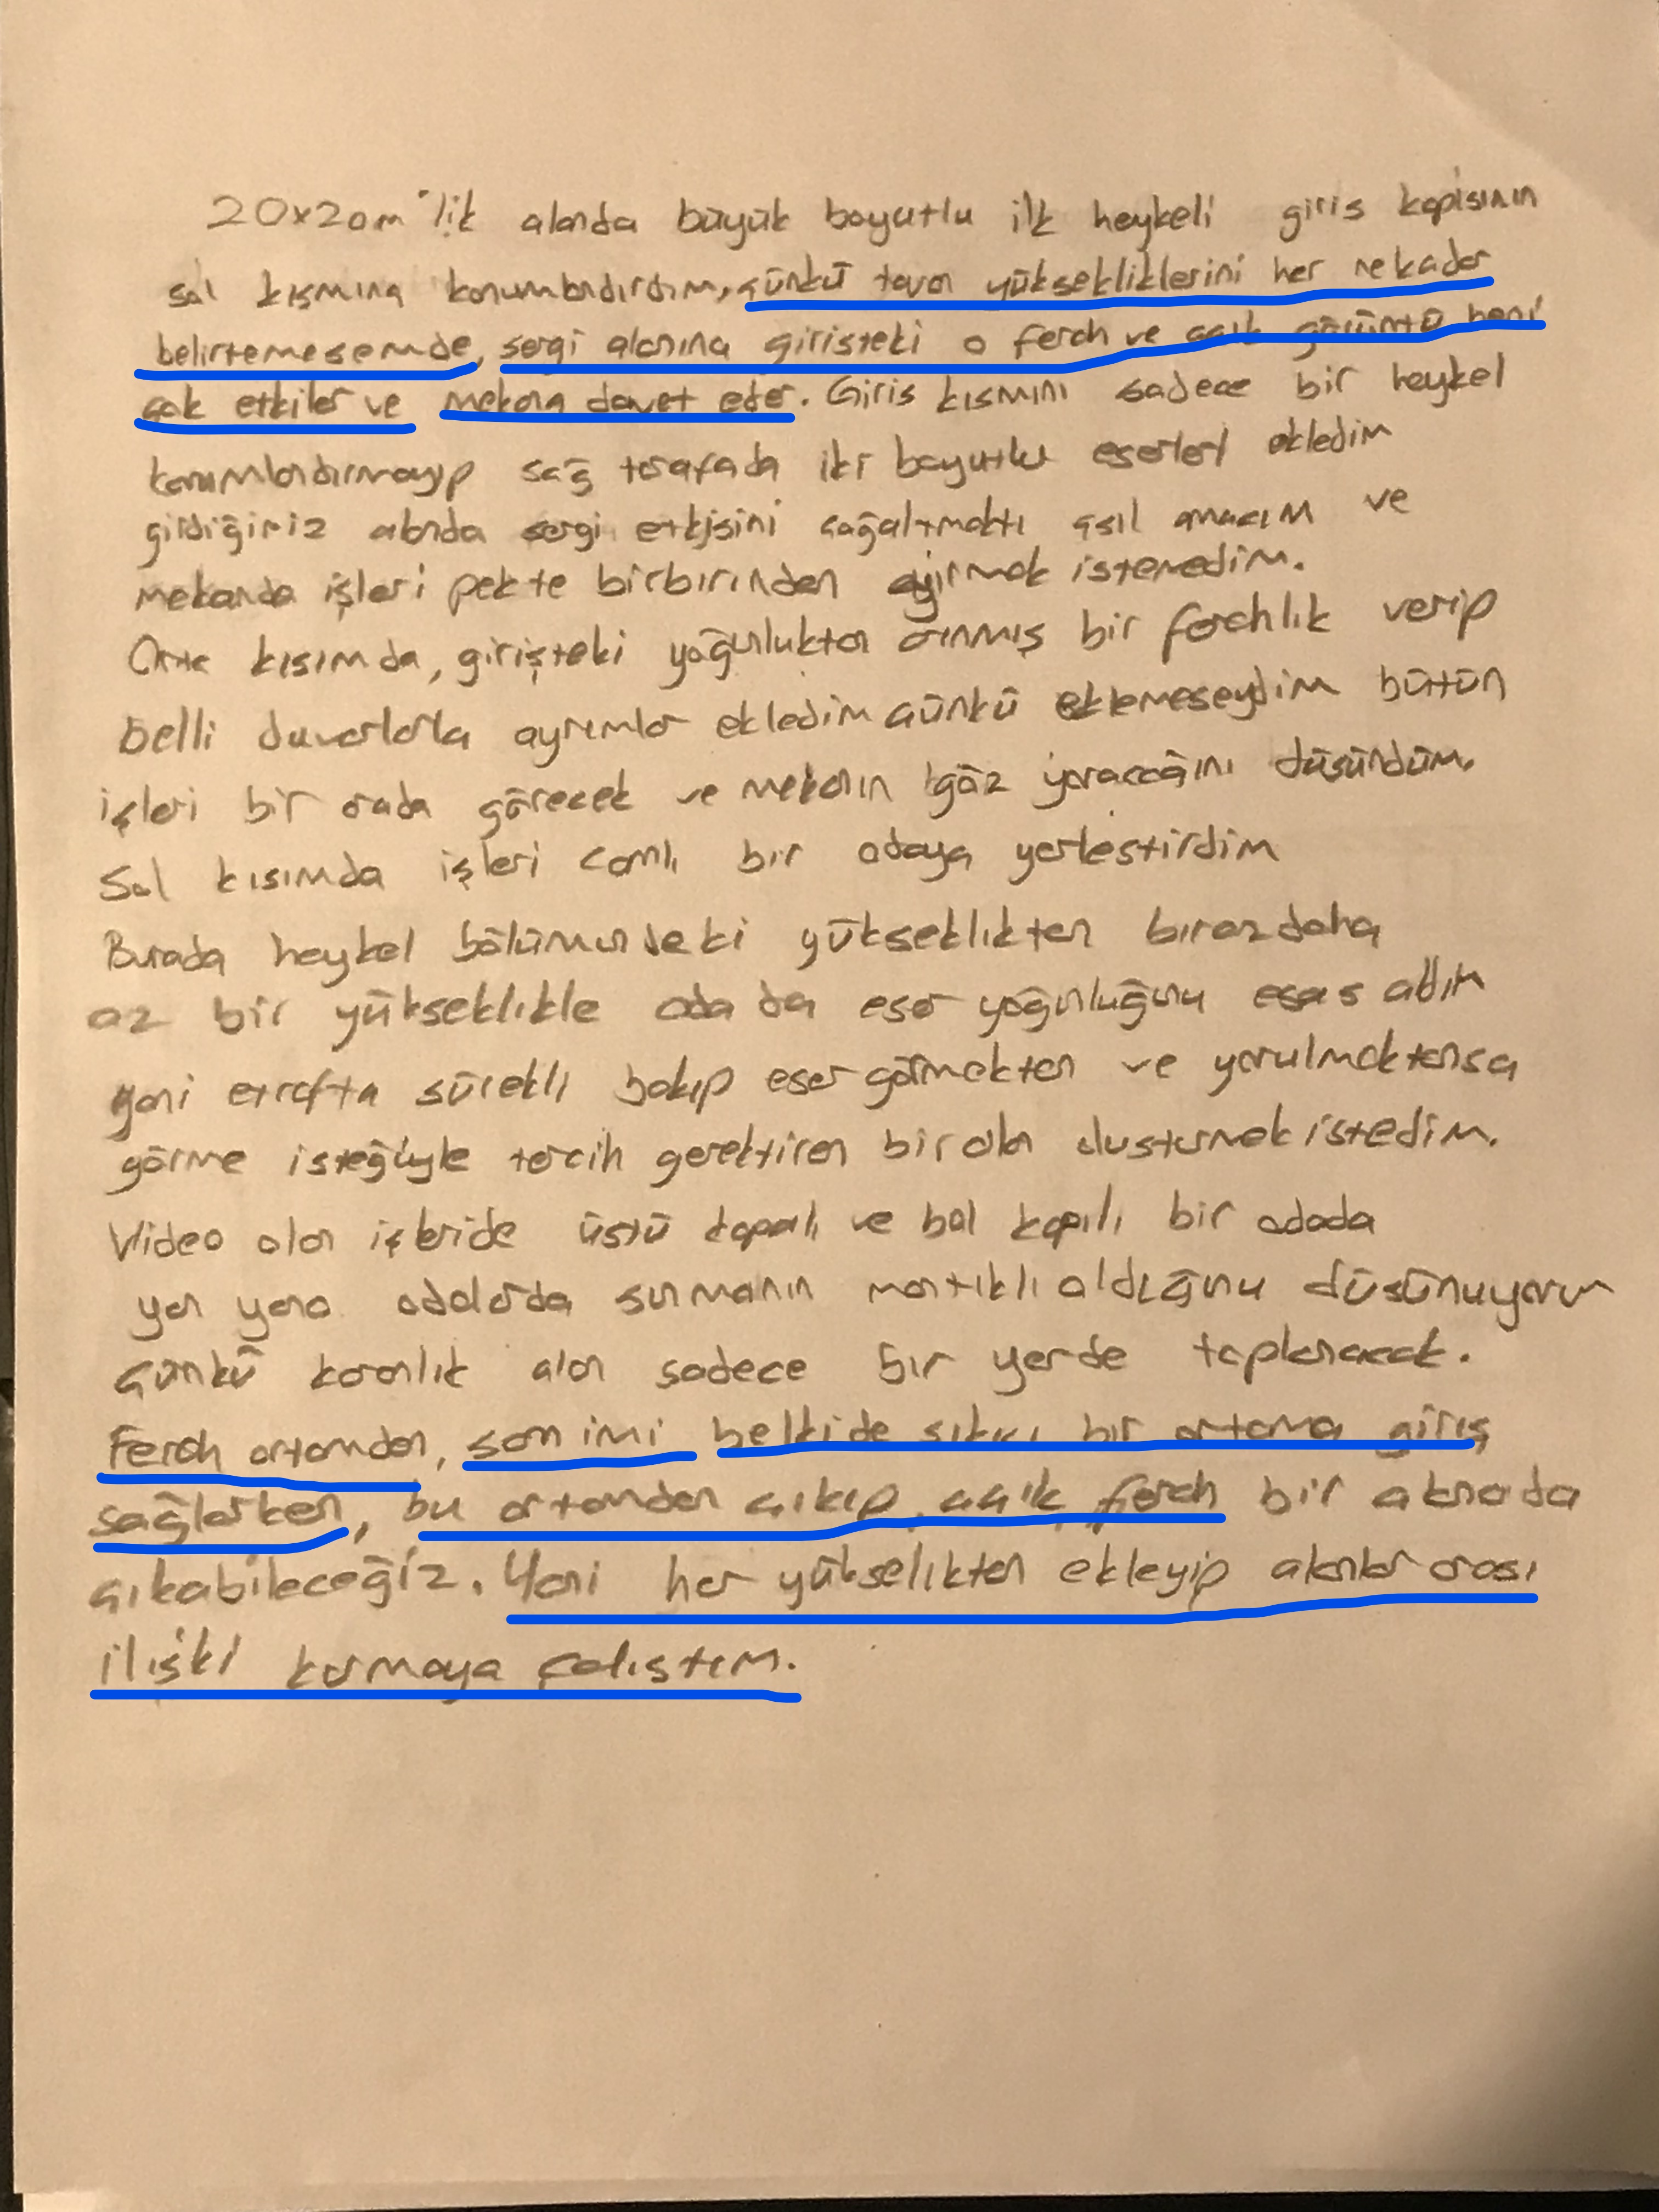 20x20m'lik alanda büyük boyutlu ilk heykeli giris kapisının
sol kısmına konumlandırdım, çünkü tavan yüksekliklerini her nekadar
belirtemesemde, sergi alanına giristeki o ferah ve açık görüntü beni
çok etkiler ve mekana davet eder. Giris kısmını sadece bir heykel
konumlandırmayıp sağ tarafada iki boyutlu eserleri ekledim
girdiğimiz alanda sergi etkisini çoğaltmaktı asıl amacım ve
mekanda işleri pekte birbirinden ayırmak istemedim.
Orta kısımda, girişteki yoğunluktan arınmış bir ferahlık verip
belli duvarlarla ayrımlar ekledim çünkü eklemeseydim bütün
işleri bir arada görecek ve mekanın göz yoracağını düsündüm.
Sol kısımda işleri camlı bir odaya yerlestirdim
Burada heykel bölümündeki yükseklikten biraz daha
az bir yükseklikle odada eser yoğunluğunu esas aldım
yani etrafta sürekli bakıp eser görmekten ve yorulmaktansa
görme isteğiyle tercih gerektiren bir alan olusturmak istedim.
Video olan işleride üstü kapalı ve bol kapılı bir odada
yan yana odalarda sunmanın mantıklı olduğunu düsünuyorum
çünkü karanlık alan sadece bir yerde toplanacak.
Ferah ortamdan, samimi belkide sıkıcı bir ortama giriş
sağlarken, bu ortamdan çıkıp, açık, ferah bir alanada
çıkabileceğiz. Yani her yükselikten ekleyip alanlar arası
ilişki kurmaya çalıstım.